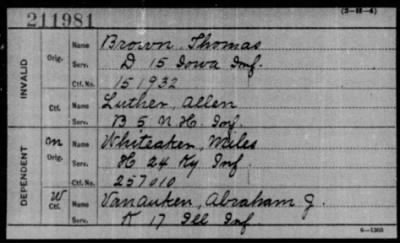 (3-H-4)
211981
INVALID
Orig. Name Brown, Thomas
Serv. D 15 Iowa Inf.
Ctf. No. 151932
Ctf. Name Luther, Allen
Serv. B 5 N.H. Inf.
DEPENDENT
on Orig. Name Whiteaker, Miles
Serv. H 24 Ky Inf.
Ctf. No. 257010
W Ctf. Name VanAuken, Abraham J.
Serv. K 17 Ill Inf.